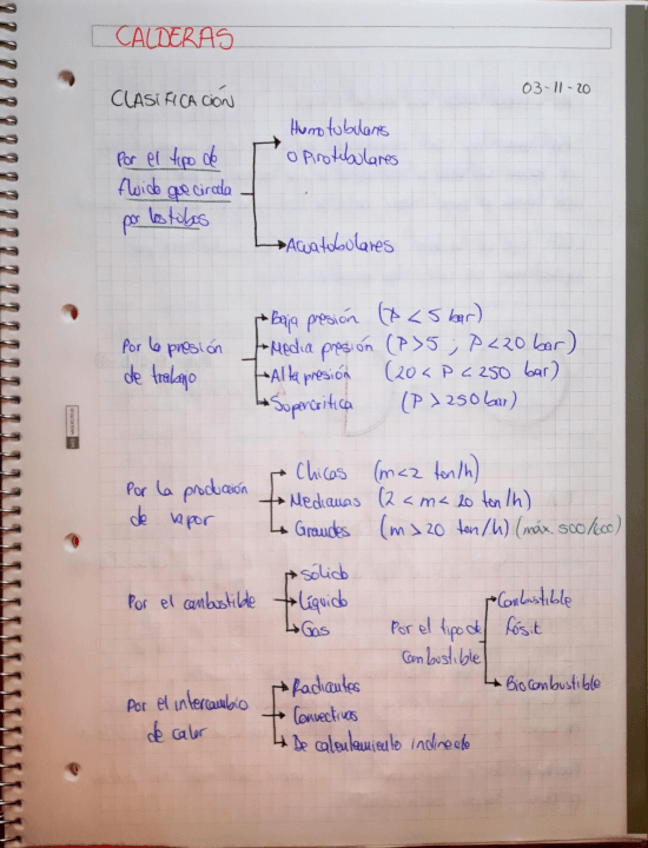 CALDERAS
03-11-20
CLASIFICACIÓN
Por el tipo de
fluido que circula
por los tubos
Humotubulares
o Pirotubulares
Acuatubulares
Por la presión
de trabajo
Baja presión (P < 5 bar)
Media presión (P>5 ; P<20 bar)
Alta presión (20 < P < 250 bar)
Supercrítica (P > 250 bar)
Por la producción
de vapor
Chicas (m<2 ton/h)
Medianas (2 < m < 20 ton/h)
Grandes (m > 20 ton/h) (máx. 500/600)
Por el combustible
Sólido
Líquido
Gas
Por el tipo de
combustible
Combustible
fósil
Biocombustible
Por el intercambio
de calor
Radiantes
Convectivos
De calentamiento indirecto